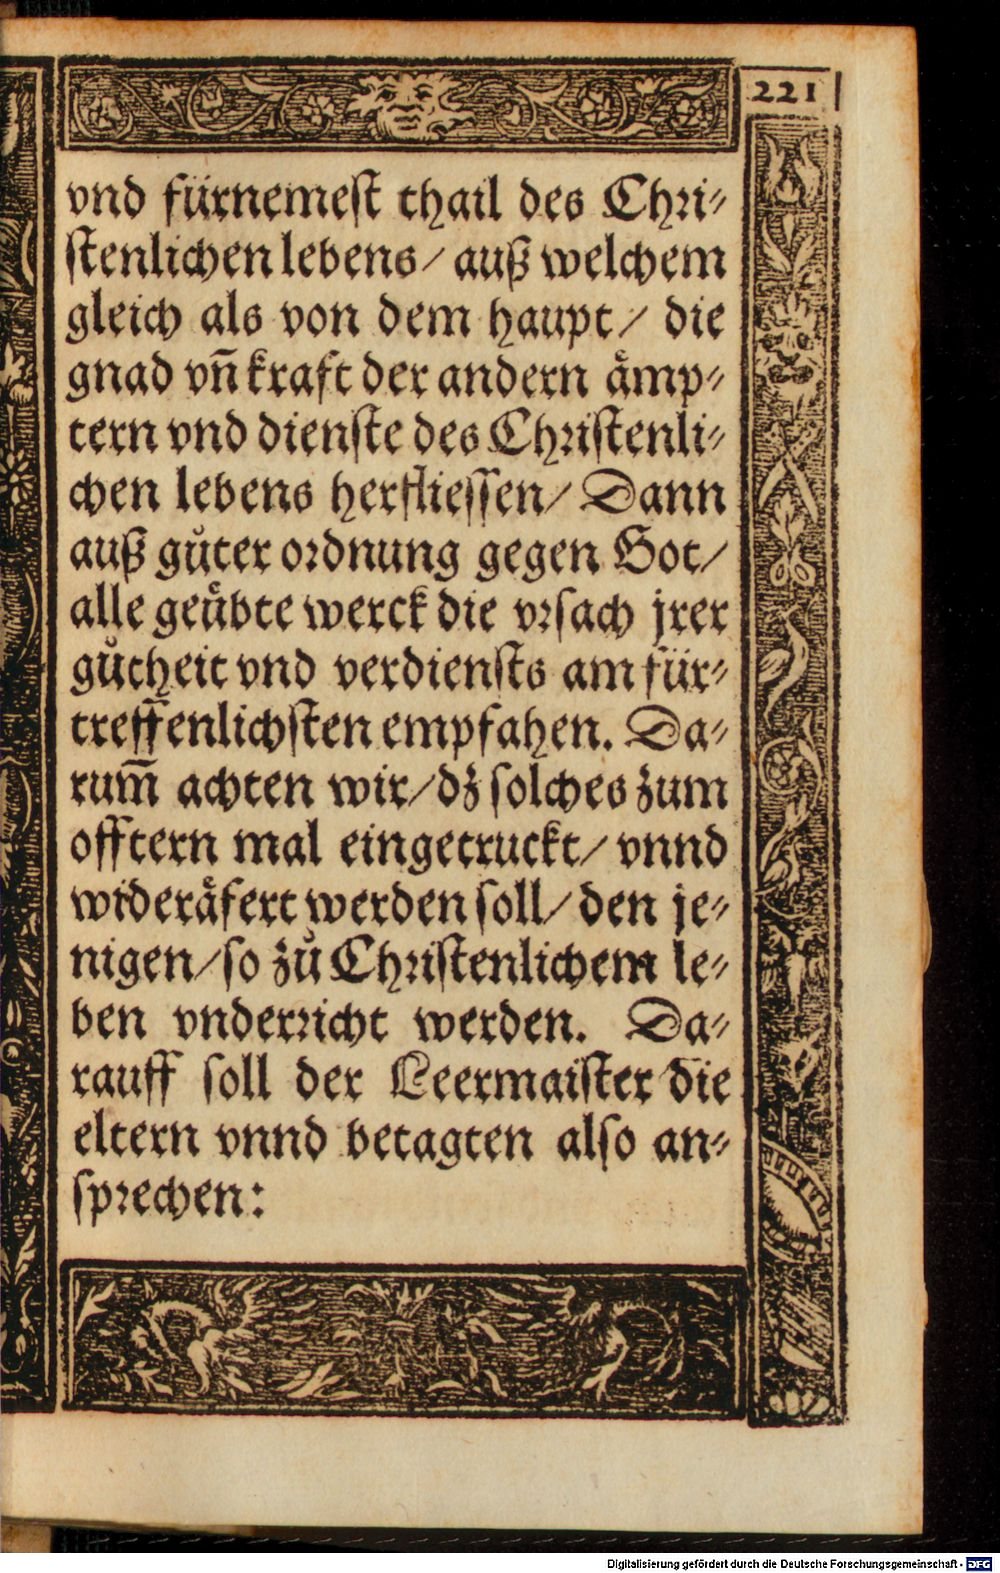 221
vnd fürnemest thail des Chri⸗
stenlichen lebens/ auß welchem
gleich als von dem haupt/ die
gnad vn̄ kraft der andern aͤmp⸗
tern vnd dienste des Christenli⸗
chen lebens herfliessen/ Dann
auß guͦter ordnung gegen Got/
alle geuͤbte werck die vrsach jrer
guͦtheit vnd verdiensts am für⸗
treffenlichsten empfahen. Da⸗
rum̄ achten wir/ dz solches zum
offtern mal eingetruckt/ vnnd
wideraͤfert werden soll/ den je⸗
nigen/ so zuͦ Christenlichem le⸗
ben vnderricht werden. Da⸗
rauff soll der Leermaister die
eltern vnnd betagten also an⸗
sprechen:
Digitalisierung gefördert durch die Deutsche Forschungsgemeinschaft - DFG